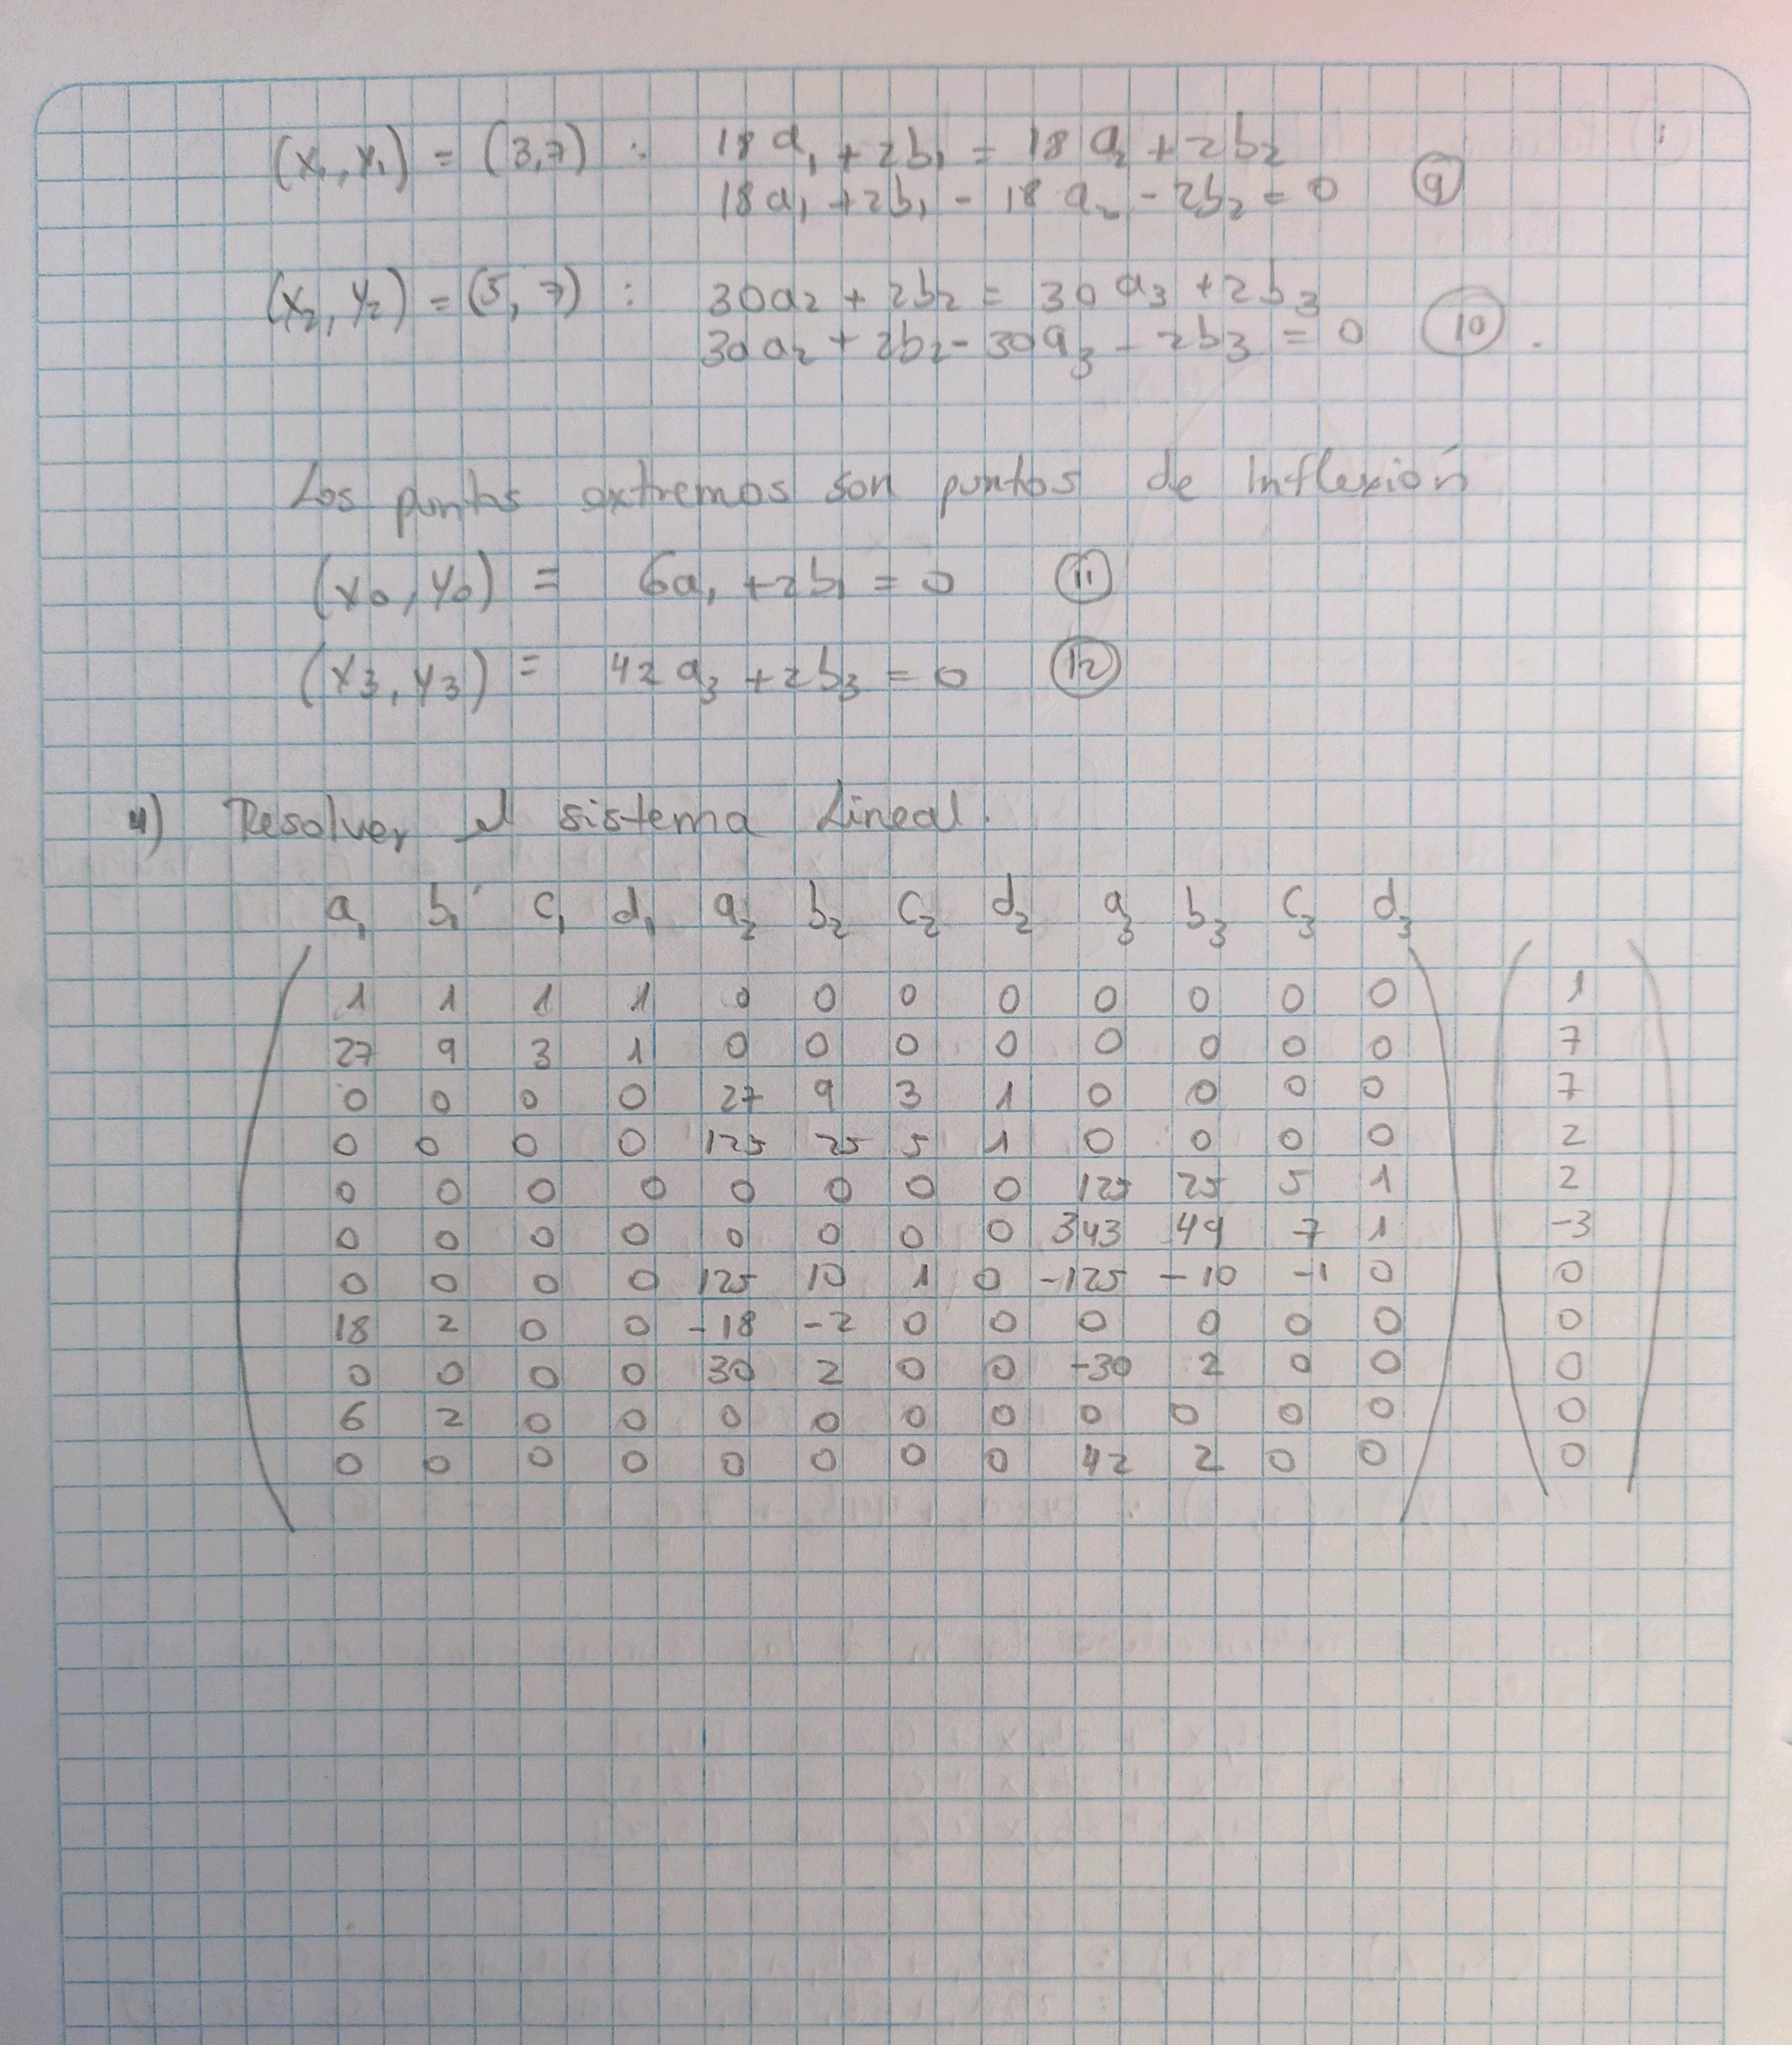 (x₁, y₁) = (3,7) : 18a₁ + 2b₁ = 18a₂ + 2b₂
18a₁ + 2b₁ - 18a₂ - 2b₂ = 0 (9)
(x₂, y₂) = (5, 7) : 30a₂ + 2b₂ = 30a₃ + 2b₃
30a₂ + 2b₂ - 30a₃ - 2b₃ = 0 (10).
Los puntos extremos son puntos de Inflexión
(x₀, y₀) = 6a₁ + 2b₁ = 0 (11)
(x₃, y₃) = 42a₃ + 2b₃ = 0 (12)
4) Resolver el sistema Lineal.
a₁ b₁ c₁ d₁ a₂ b₂ c₂ d₂ a₃ b₃ c₃ d₃
1 1 1 1 0 0 0 0 0 0 0 0 1
27 9 3 1 0 0 0 0 0 0 0 0 7
0 0 0 0 27 9 3 1 0 0 0 0 7
0 0 0 0 125 25 5 1 0 0 0 0 2
0 0 0 0 0 0 0 0 125 25 5 1 2
0 0 0 0 0 0 0 0 343 49 7 1 -3
0 0 0 0 125 10 1 0 -125 -10 -1 0 0
18 2 0 0 -18 -2 0 0 0 0 0 0 0
0 0 0 0 30 2 0 0 -30 2 0 0 0
6 2 0 0 0 0 0 0 0 0 0 0 0
0 0 0 0 0 0 0 0 42 2 0 0 0